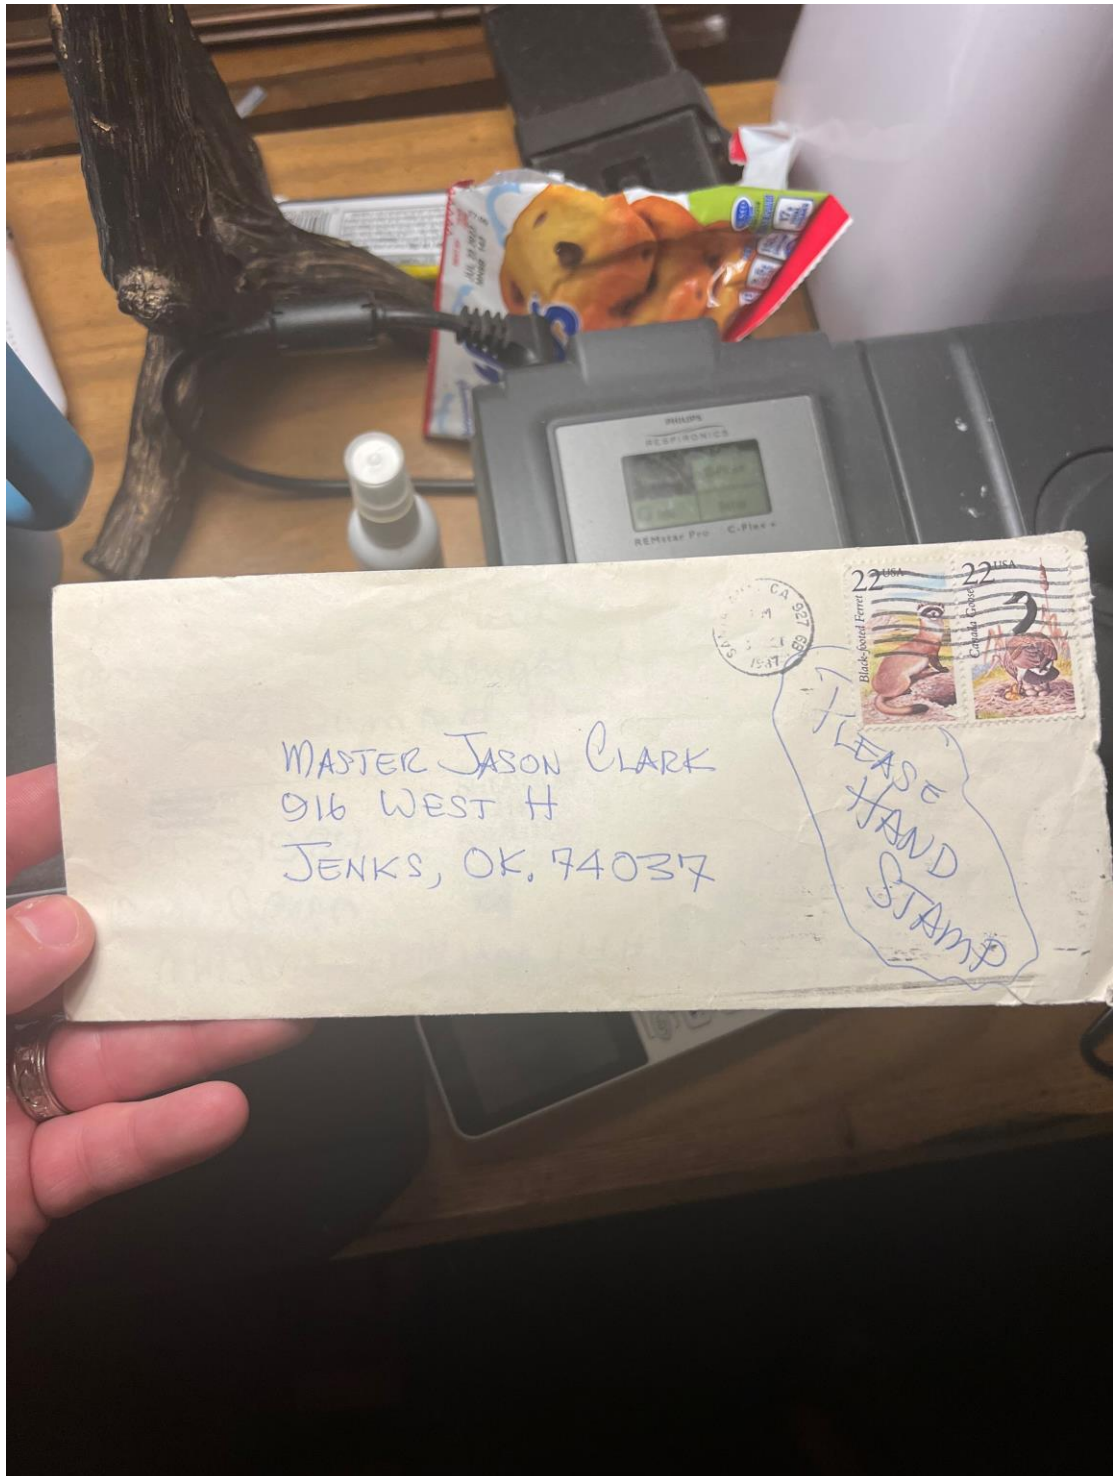 PHILIPS
RESPIRONICS
REMstar Pro C-Flex+
CA 927
1987
22 USA
Black-footed Ferret
22 USA
Canada Goose
MASTER JASON CLARK
916 WEST H
JENKS, OK. 74037
PLEASE
HAND
STAMP